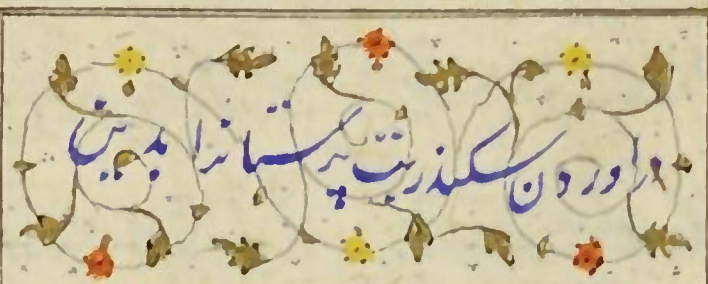 در اوردن سکندر بت پرستانرا بدین